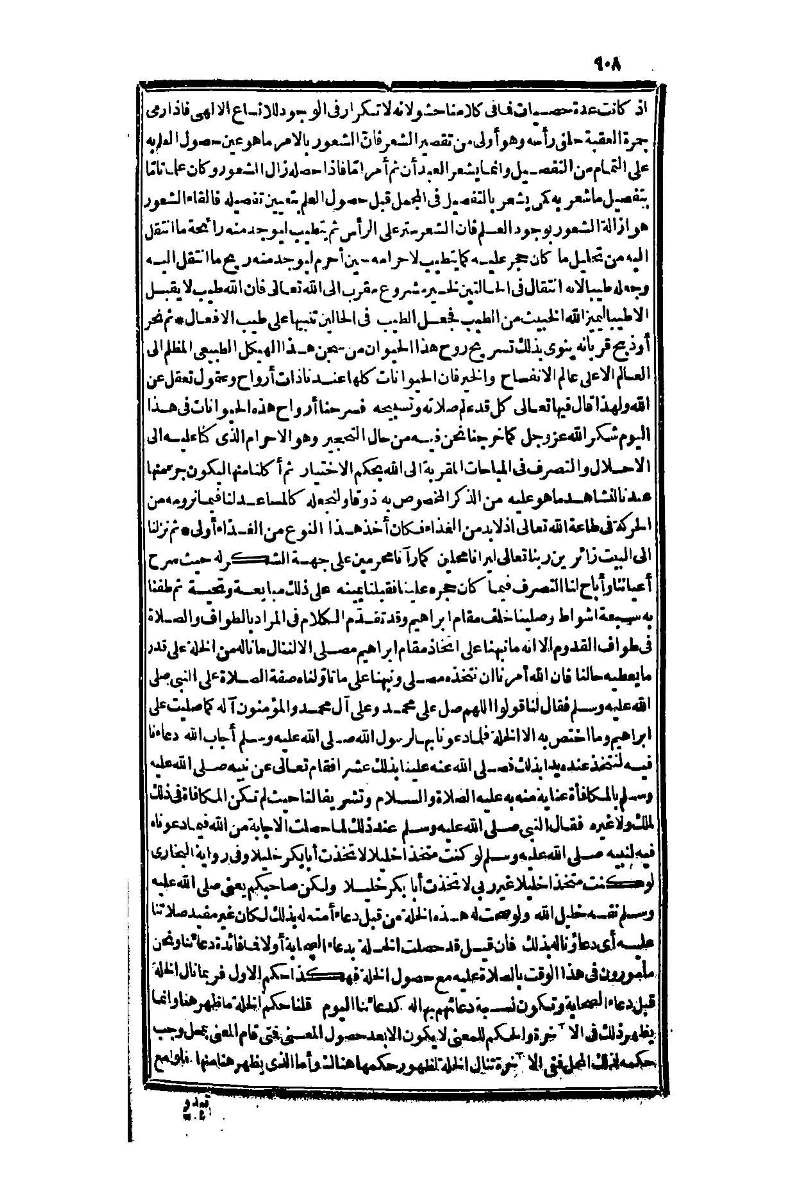 ٩٠٨
اذ كانت عدة حصيات فما فى كلامنا حشو لانه لا تكرار فى الوجود للاتساع الالهى فاذا رمى
جمرة العقبة حلق رأسه وهو أولى من تقصير الشعر فان الشعور بالامر ما هو عين حصول العلم به
على التمام من التفصيل وانما يشعر العبد أن ثم أمر امّا فاذا حصله زال الشعور وكان علما تامّا
بتفصيل ما شعر به كمن يشعر بالتفصيل فى المجمل قبل حصول العلم بتعيين تفصيله فالقاء الشعور
هو ازالة الشعور بوجود العلم فان الشعر ستر على الرأس ثم يتطيب ليوجد منه رائحة ما انتقل
اليه من تحليل ما كان حجر عليه كما يتطيب لاحرامه حين أحرم ليوجد منه ريح ما انتقل اليه
وجعله طيبا لانه انتقال فى الحالتين لخير مشروع مقرب الى الله تعالى فان الله طيب لا يقبل
الا طيبا ليميز الله الخبيث من الطيب فجعل الطيب فى الحالين تنبيها على طيب الافعال * ثم نحر
أو ذبح قربانه ينوى بذلك تسريح روح هذا الحيوان من سجن هذا الهيكل الطبيعى المظلم الى
العالم الاعلى عالم الانفساح والخير فان الحيوانات كلها عندنا ذات أرواح وعقول تعقل عن
الله ولهذا قال فيها تعالى كل قد علم صلاته وتسبيحه فسرحنا أرواح هذه الحيوانات فى هذا
اليوم شكر الله عز وجل كما خرجنا نحن فيه من حال التحجير وهو الاحرام الذى كنا عليه الى
الاحلال والتصرف فى المباحات المقربة الى الله بحكم الاختيار ثم أكلنا منها ليكون جرء منها
عندنا لنشاهد ما هو عليه من الذكر المخصوص به ذوقا ولنجعله كالمساعد لنا فيما نرومه من
الحركة فى طاعة الله تعالى اذ لا بد من الغذاء فكان أخذ هذا النوع من الغذاء أولى * ثم نزلنا
الى البيت زائرين ربنا تعالى ليرانا محلين كما رآنا محرمين على جهة الشكر له حيث سرح
أعياننا وأباح لنا التصرف فيما كان حجره علينا فقبلنا يمينه على ذلك مبايعة وتحية ثم طفنا
به سبعة اشواط وصلينا خلف مقام ابراهيم وقد تقدّم الكلام فى المراد بالطواف والصلاة
فى طواف القدوم الا انه ما نبهنا على اتخاذ مقام ابراهيم مصلى الا لننال ما ناله من الخلة على قدر
ما يعطيه حالنا فان الله أمرنا ان نتخذه مصلى ونبهنا على ما تأوّلناه صفة الصلاة على النبى صلى
الله عليه وسلم فقال لنا قولوا اللهم صل على محمد وعلى آل محمد والمؤمنون آله كما صليت على
ابراهيم وما اختص به الا الخلة فلما دعونا بها لرسول الله صلى الله عليه وسلم أجاب الله دعاءنا
فيه لنتخذ عنده يدا بذلك فصلى الله عنه علينا بذلك عشرا فقام تعالى عن نبيه صلى الله عليه
وسلم بالمكافأة عناية منه به عليه الصلاة والسلام وتشريفا لنا حيث لم تكن المكافاة فى ذلك
لملك ولا غيره فقال النبى صلى الله عليه وسلم عند ذلك لما حصلت الاجابة من الله فيما دعوناه
فيه لنبيه صلى الله عليه وسلم لو كنت متخذا خليلا لا تخذت أبا بكر خليلا وفى رواية البخارى
لو كنت متخذا خليلا غير ربى لا تخذت أبا بكر خليلا ولكن صاحبكم يعنى صلى الله عليه
وسلم نفسه خليل الله ولو صحت له هذه الخلة من قبل دعاء أمته له بذلك لكان غير مفيد صلاتنا
عليه أى دعاؤنا له بذلك فان قيل قد حصلت الخلة بدعاء الصحابة أولا فما فائدة دعائنا ونحن
مأمورون فى هذا الوقت بالصلاة عليه مع حصول الخلة فهكذا حكم الاول فربما نال الخلة
قبل دعاء الصحابة وتكون نسبة دعائهم بها له كدعائنا اليوم قلنا حكم الخلة ما ظهر هنا وانما
يظهر ذلك فى الآخرة والحكم للمعنى لا يكون الا بعد حصول المعنى فمتى قام المعنى بمحل وجب
حكمه لذلك المحل ففى الآخرة تنال الخلة لظهور حكمها هنالك وأما الذى يظهر هنا منها